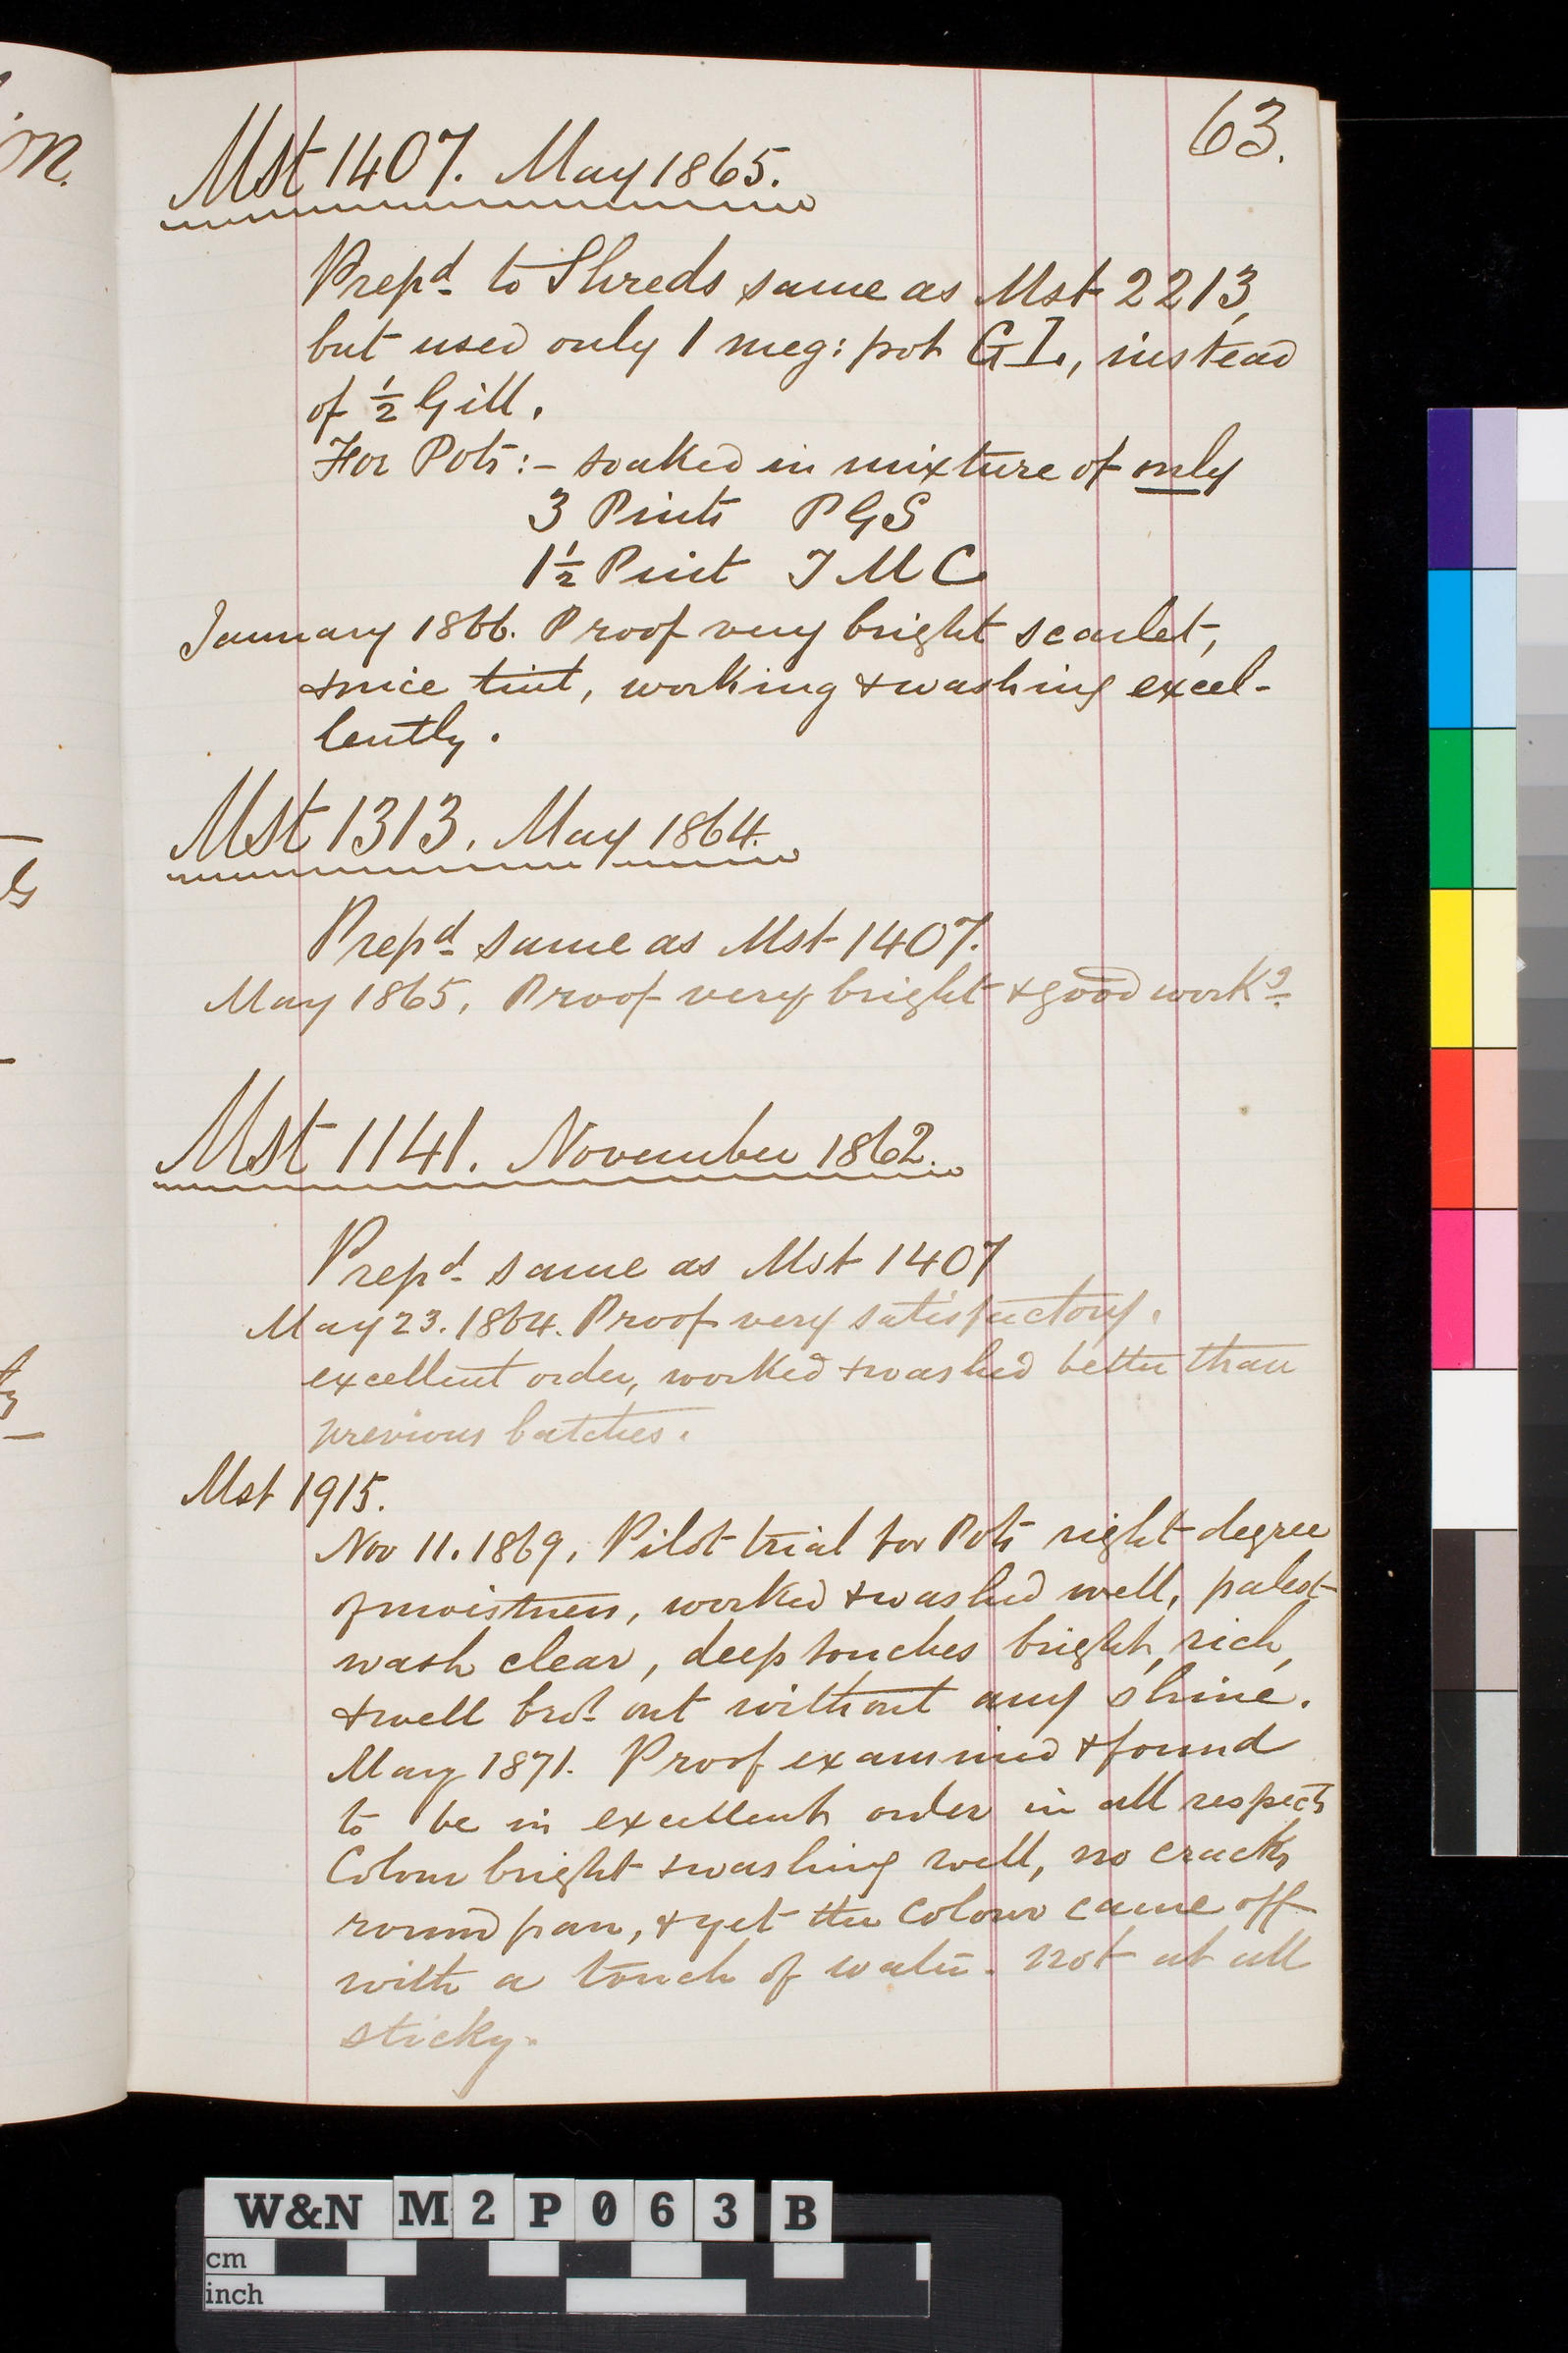 63.
Mst 1407. May 1865.
Prepd. to Shreds same as Mst 2213,
but used only 1 meg: pot GI., instead
of ½ Gill.
For Pots:- soaked in mixture of only
3 Pints PGS
1½ Pint TMC
January 1866. Proof very bright scarlet,
& nice tint, working & washing excel-
lently.
Mst 1313. May 1864.
Prepd. same as Mst 1407.
May 1865. Proof very bright & good workg.
Mst 1141. November 1862.
Prepd. same as Mst 1407
May 23. 1864. Proof very satisfactory.
excellent order, worked & washed better than
previous batches.
Mst 1915.
Nov 11. 1869. Pilot trial for Pots right degree
of moistness, worked & washed well, palest
wash clear, deep touches bright, rich,
& well brot. out without any shine.
May 1871. Proof examined & found
to be in excellent order in all respects
Colour bright & washing well, no cracks
round pan, & yet the Colour came off
with a touch of water. not at all
sticky.
W&N M2P063B
cm
inch